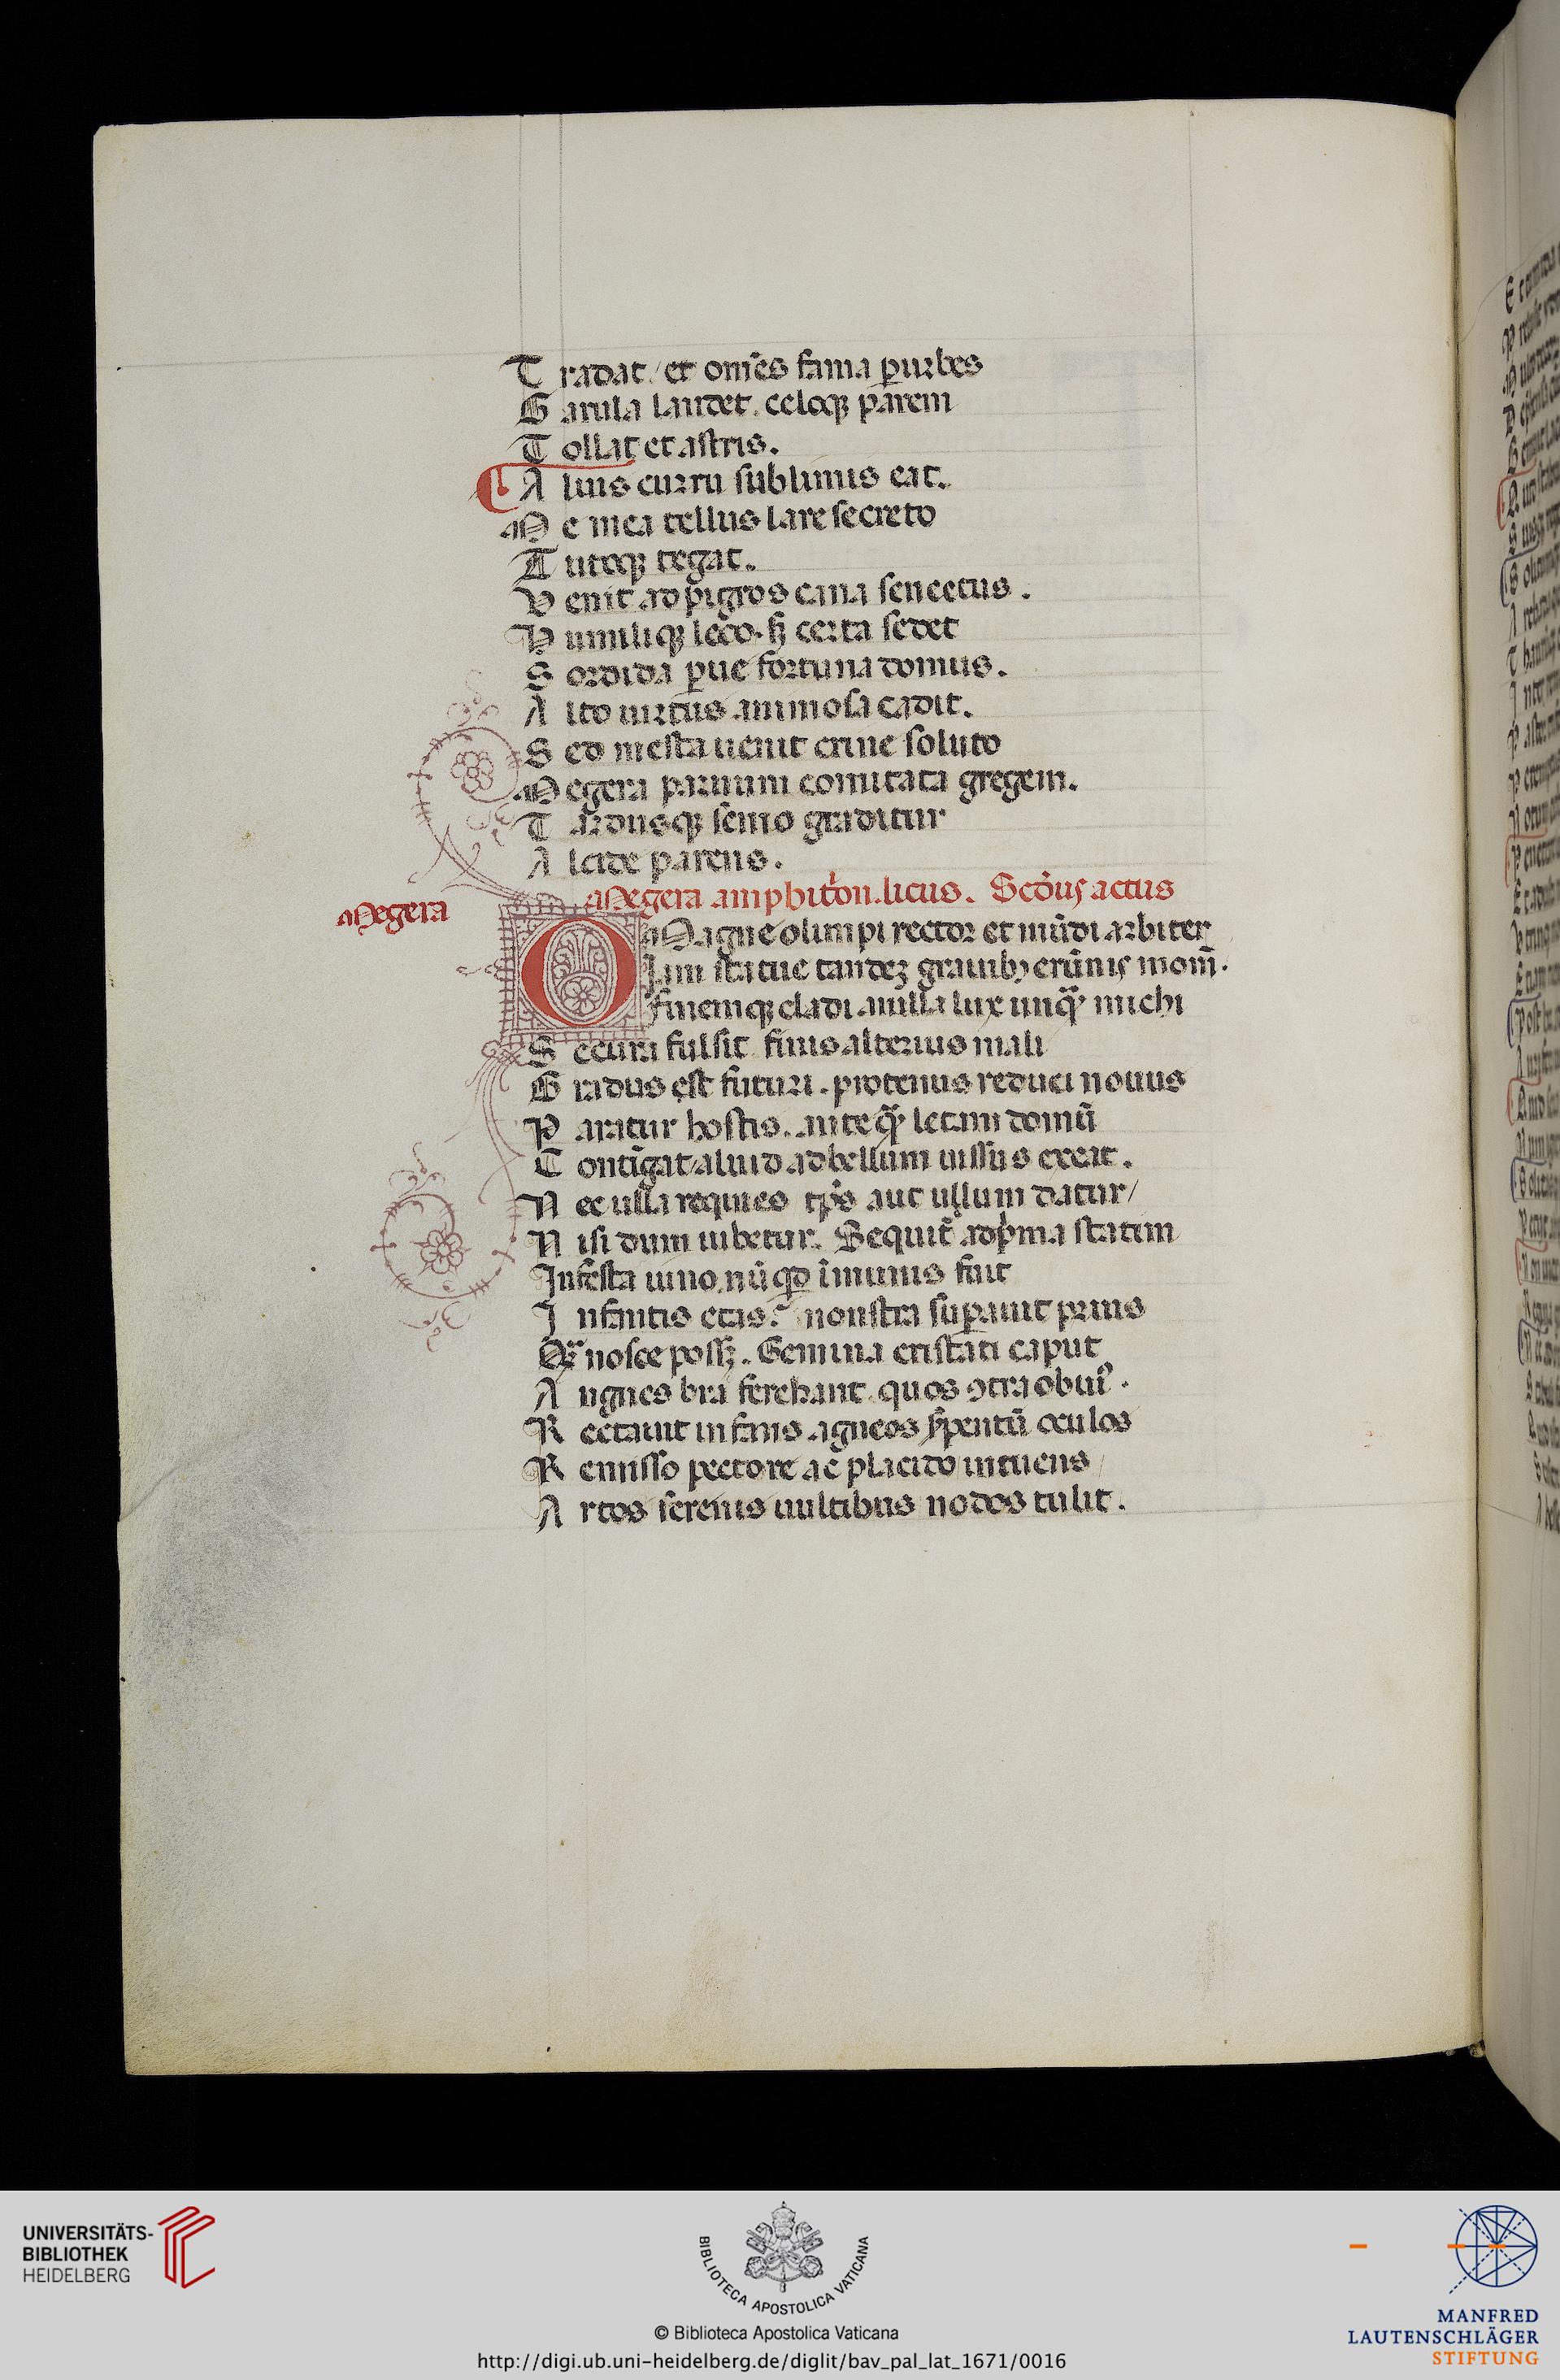 Tradat / et om̄es fama ꝑ urbes
Garula laudet. celoqꝫ parem
Tollat et astris.
Alius curru sublimis eat.
Me mea tellus lare secreto
Tutoqꝫ tegat.
Venit ad pigros cana senectus.
Humiliqꝫ loco. sꝫ certa sedet
Sordida ꝑue fortuna domus.
Alto uirtus animosa cadit.
Sed mesta uenit crine soluto
Megera paruum comitata gregem.
Tardusqꝫ senio graditur
Alcide parens.
Megera amphitōn. licus. Scd̄us actus
Megera
O Magne olimpi rector et mūdi arbiter
Iam statue tandeꝫ grauibꝫ erūnis mom̄.
finemqꝫ cladi. nulla lux unqᷓ michi
Secura fulsit. finis alterius mali
Gradus est futuri. protenus reduci nouus
Paratur hostis. anteqᷓ letam domū
Contīgat / aliud ad bellum iussus exeat.
Nec ulla requies tp̄s aut ullum datur /
Nisi dum iubetur. Sequit̄ a pͥma statim
Infesta iuno. nū qd̄ īmunis fuit
Infantis etas? monstra suꝑauit prius
Qᷓ nosce possꝫ. Gemina cristati caput
Angues bina ferebant. quos ꝯtra obuiꝰ.
Rectauit infans. igneos sp̄entū oculos
Remisso pectore ac placido intuens
Artos serenis uultibus nodos tulit.
UNIVERSITÄTS-
BIBLIOTHEK
HEIDELBERG
BIBLIOTECA APOSTOLICA VATICANA
© Biblioteca Apostolica Vaticana
http://digi.ub.uni-heidelberg.de/diglit/bav_pal_lat_1671/0016
MANFRED
LAUTENSCHLÄGER
STIFTUNG